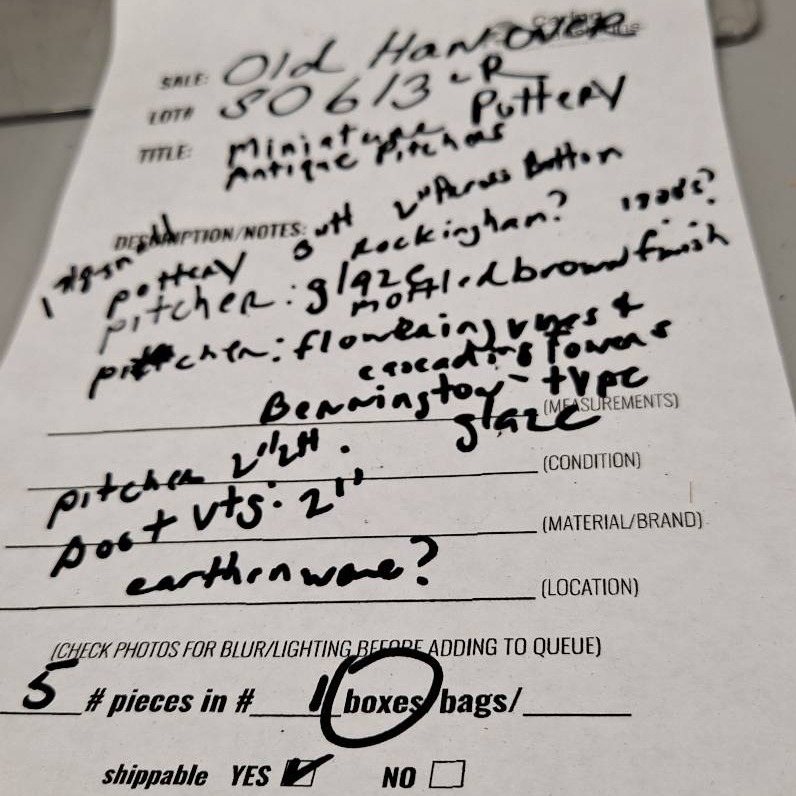 SALE: Old Hanover
LOT# 80613-R
TITLE: Miniature Pottery
Antique Pitchers
DESCRIPTION/NOTES:
2" Across Bottom
pottery Rockingham?
pitcher: glaze
mottled brown finish
pitcher: flowering vines &
cascading
Bennington-type
glaze
(MEASUREMENTS)
pitcher 2 1/2 H.
(CONDITION)
2"
(MATERIAL/BRAND)
earthenware?
(LOCATION)
(CHECK PHOTOS FOR BLUR/LIGHTING BEFORE ADDING TO QUEUE)
5 # pieces in # 1 boxes/bags/
shippable YES NO